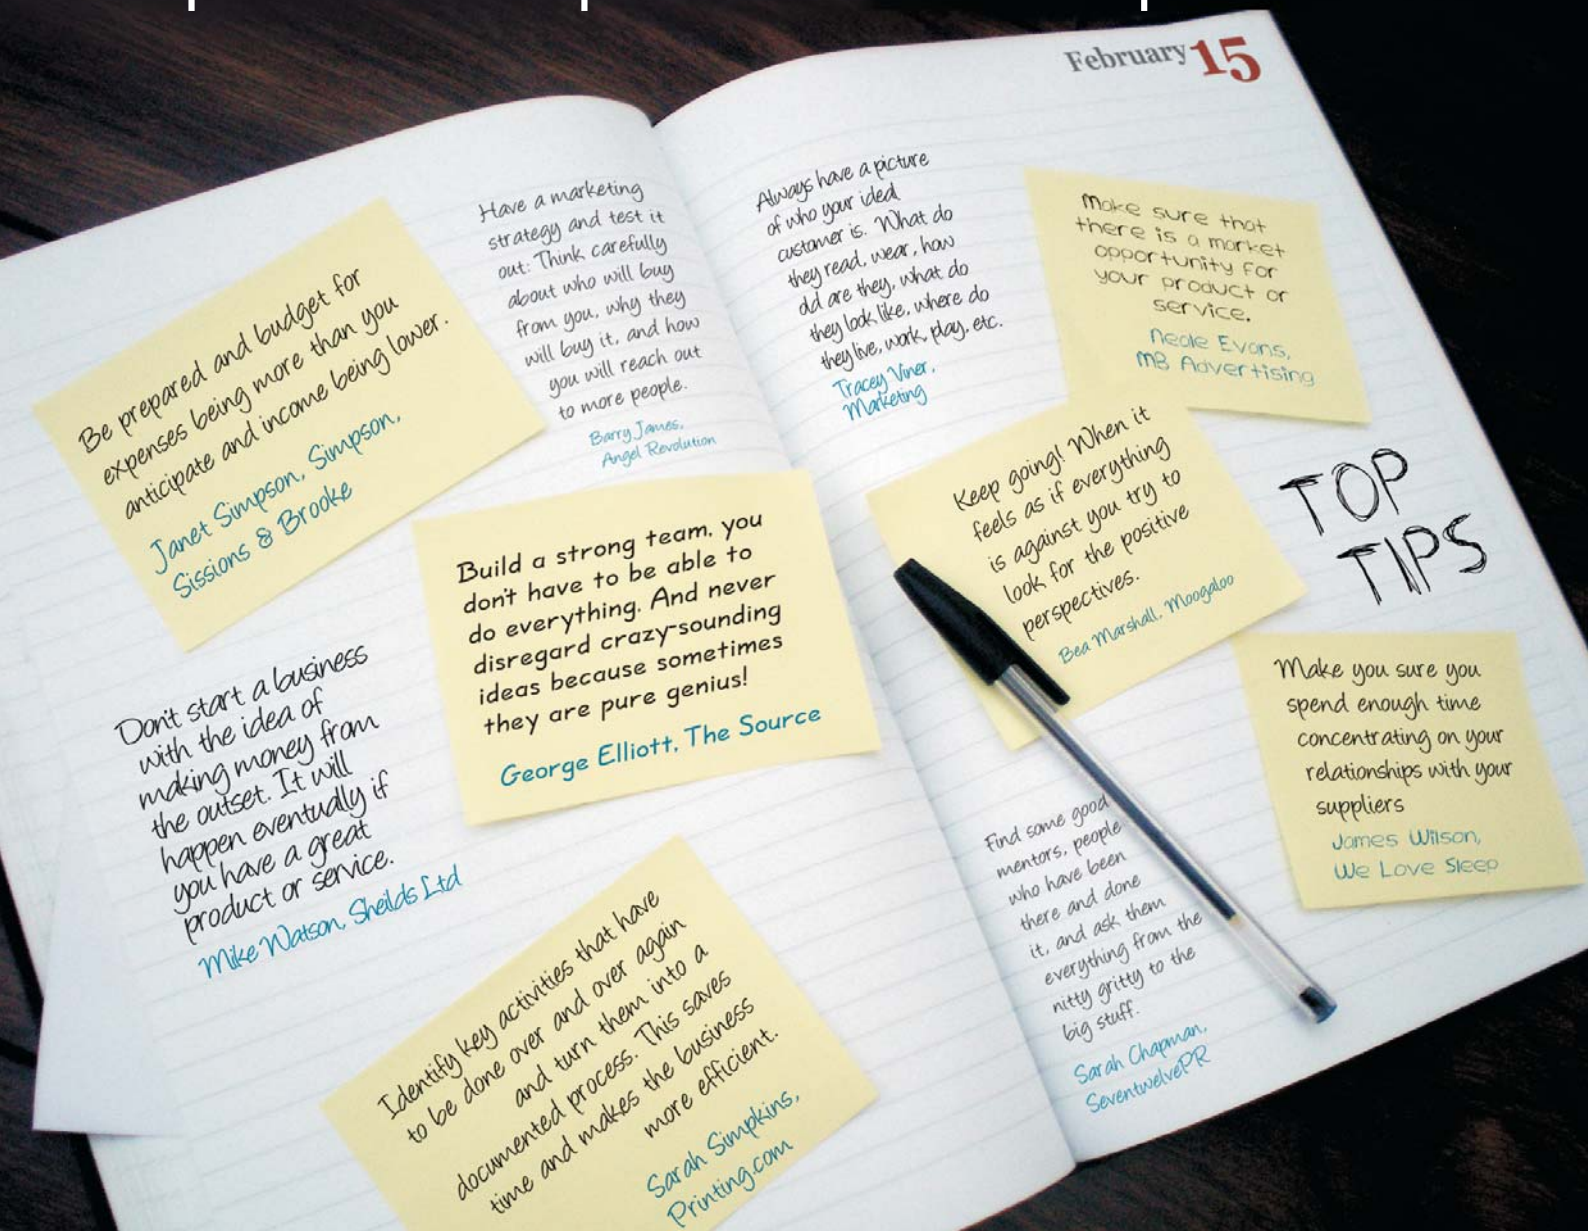 February 15
Be prepared and budget for
expenses being more than you
anticipate and income being lower.
Janet Simpson, Simpson,
Sissions & Brooke
Have a marketing
strategy and test it
out: Think carefully
about who will buy
from you, why they
will buy it, and how
you will reach out
to more people.
Barry James,
Angel Revolution
Build a strong team, you
don't have to be able to
do everything. And never
disregard crazy-sounding
ideas because sometimes
they are pure genius!
George Elliott, The Source
Don't start a business
with the idea of
making money from
the outset. It will
happen eventually if
you have a great
product or service.
Mike Watson, Sheilds Ltd
Identify key activities that have
to be done over and over again
and turn them into a
documented process. This saves
time and makes the business
more efficient.
Sarah Simpkins,
Printing.com
Always have a picture
of who your ideal
customer is. What do
they read, wear, how
old are they, what do
they look like, where do
they live, work, play, etc.
Tracey Viner,
Marketing
Make sure that
there is a market
opportunity for
your product or
service.
Neale Evans,
MB Advertising
Keep going! When it
feels as if everything
is against you try to
look for the positive
perspectives.
Bea Marshall, Moogaloo
TOP
TIPS
Make you sure you
spend enough time
concentrating on your
relationships with your
suppliers
James Wilson,
We Love Sleep
Find some good
mentors, people
who have been
there and done
it, and ask them
everything from the
nitty gritty to the
big stuff.
Sarah Chapman,
SeventwelvePR